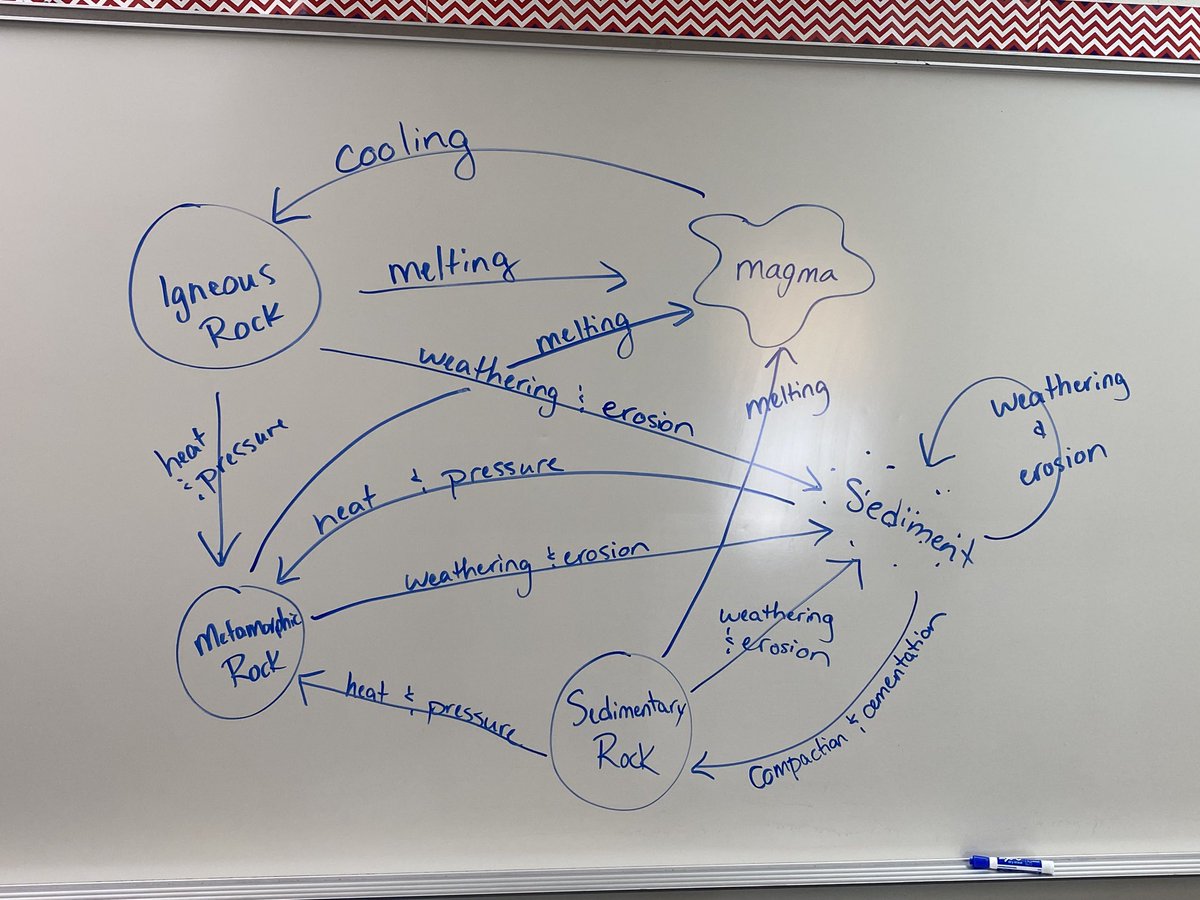 cooling
Igneous
Rock
melting
magma
melting
weathering & erosion
melting
weathering
&
erosion
heat
& pressure
heat & pressure
Sediment
weathering & erosion
Metamorphic
Rock
weathering
& erosion
heat & pressure
Sedimentary
Rock
Compaction & cementation